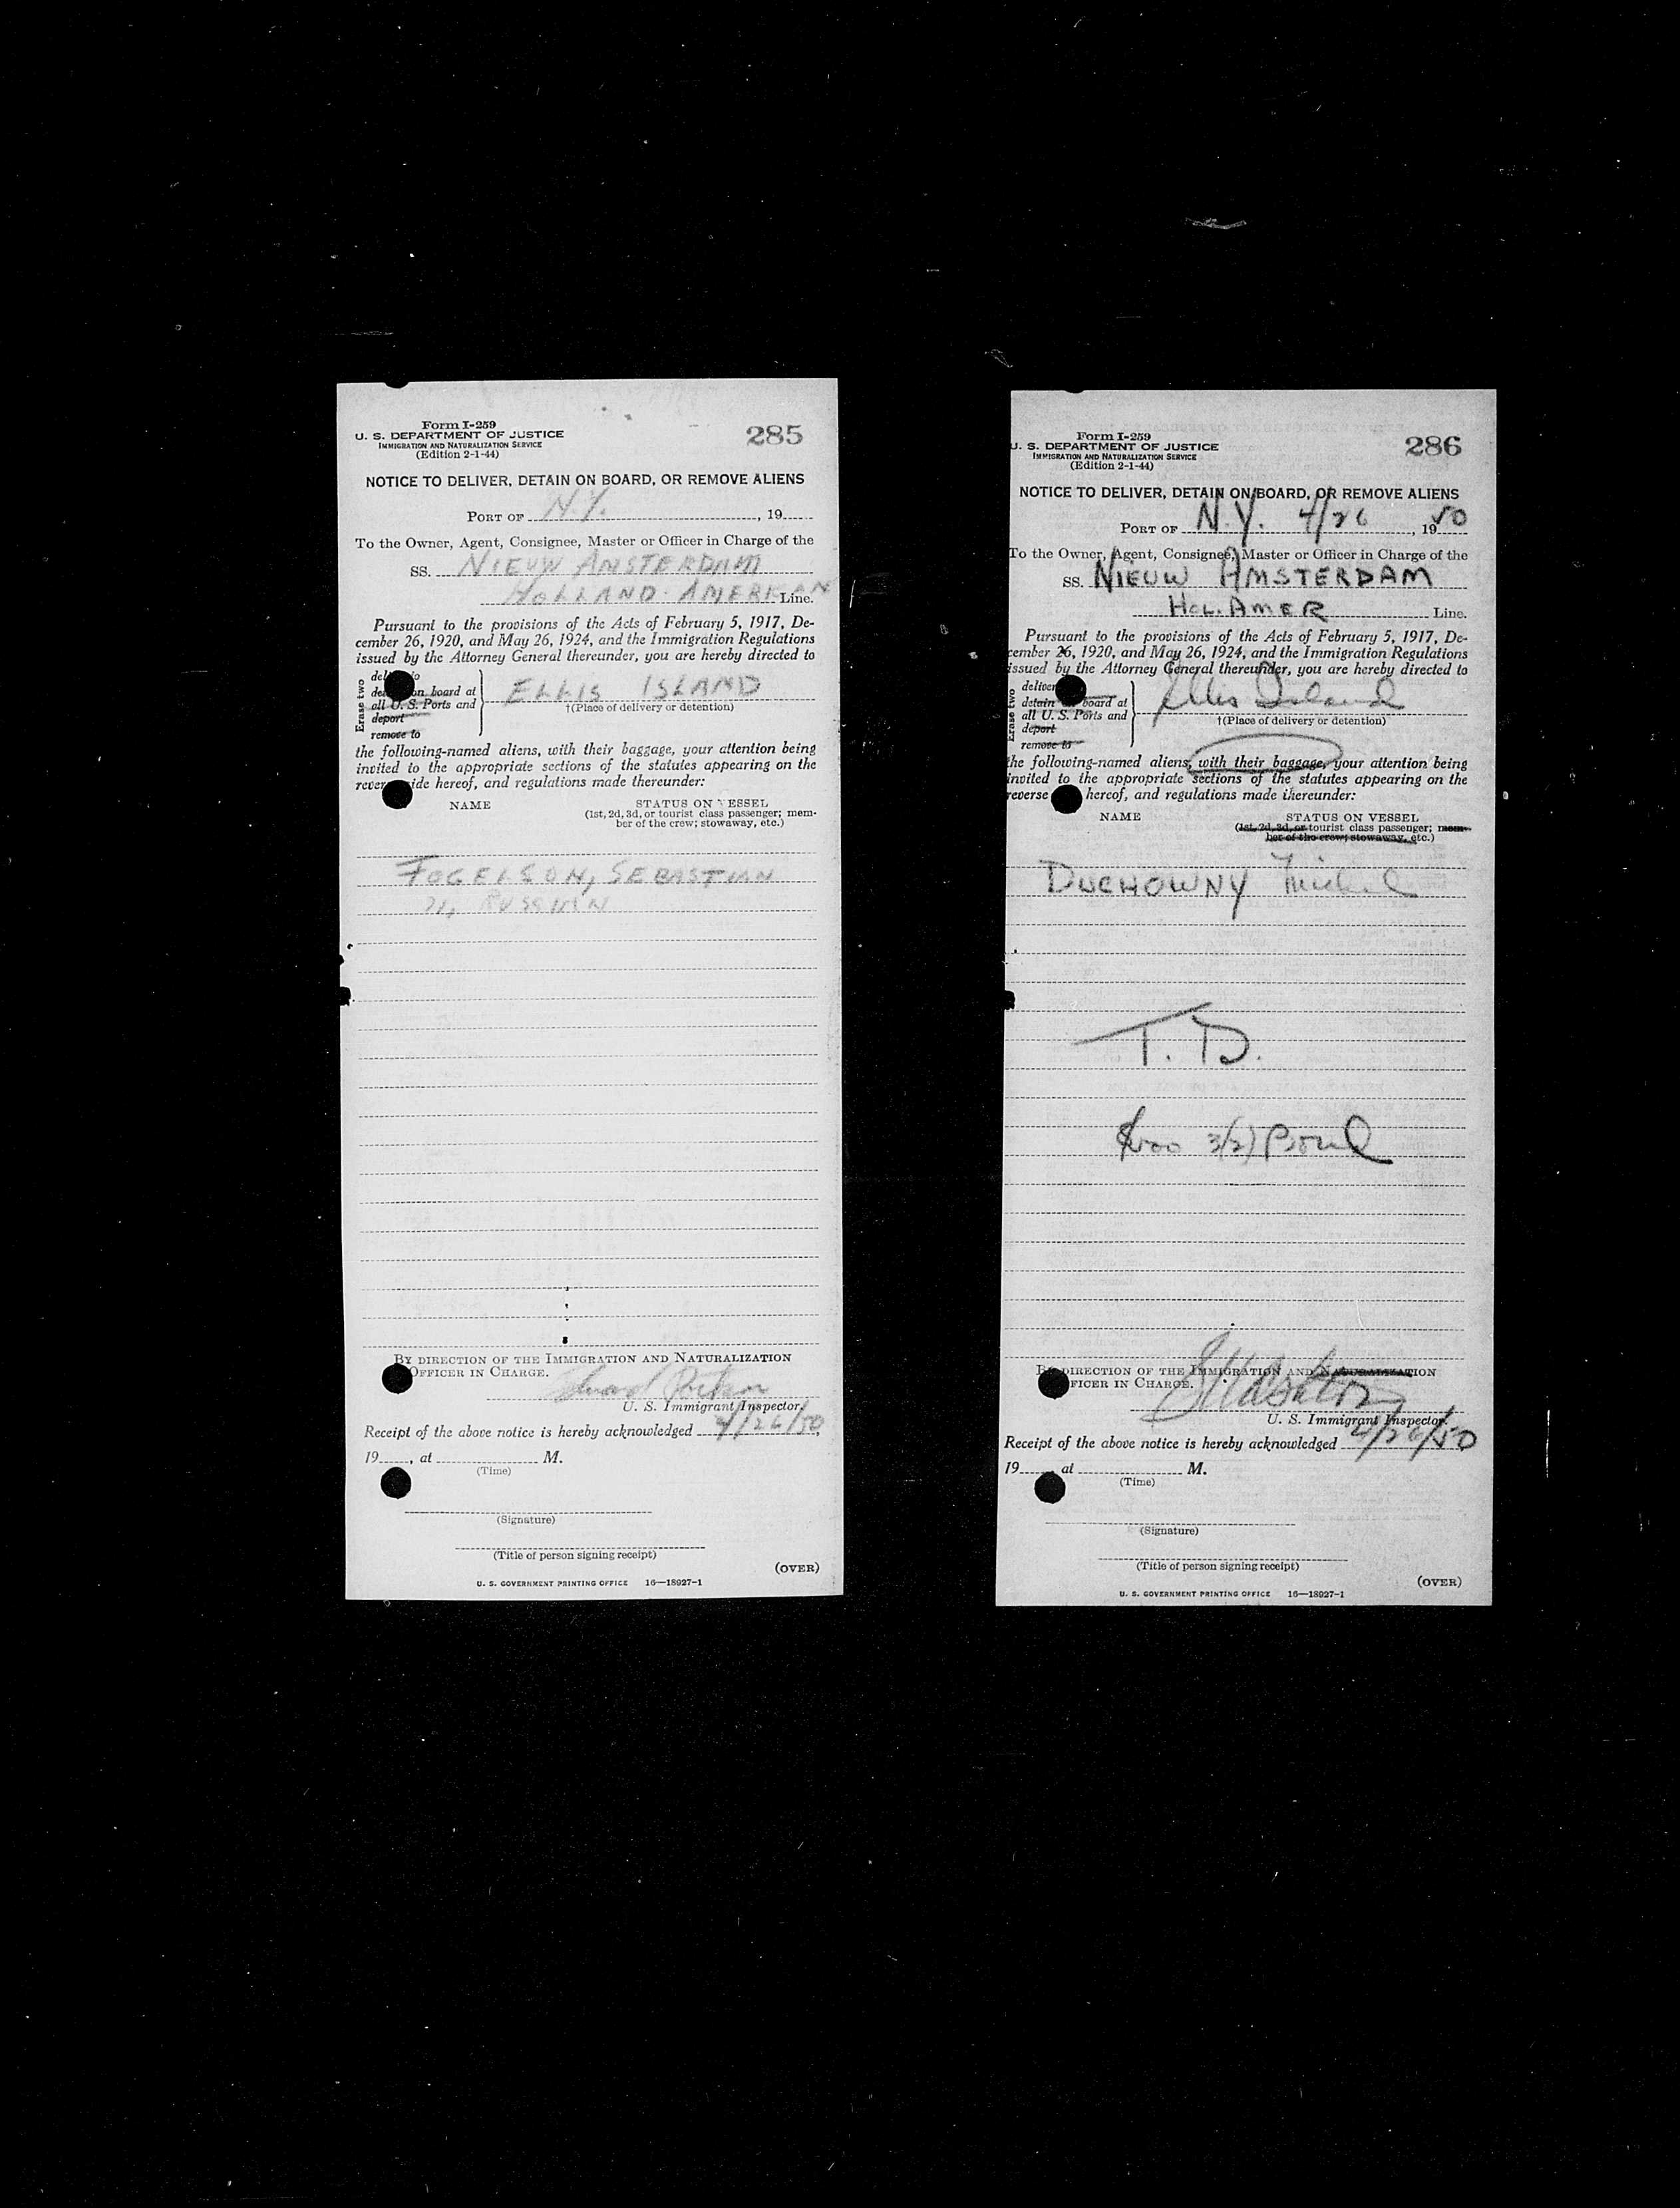 Form I-259
U. S. DEPARTMENT OF JUSTICE
IMMIGRATION AND NATURALIZATION SERVICE
(Edition 2-1-44)
285
NOTICE TO DELIVER, DETAIN ON BOARD, OR REMOVE ALIENS
PORT OF N.Y. , 19
To the Owner, Agent, Consignee, Master or Officer in Charge of the
SS. NIEUW AMSTERDAM
HOLLAND-AMERICAN Line.
Pursuant to the provisions of the Acts of February 5, 1917, De-
cember 26, 1920, and May 26, 1924, and the Immigration Regulations
issued by the Attorney General thereunder, you are hereby directed to
Erase two
on board at
all U. S. Ports and
deport
remove to
ELLIS ISLAND
†(Place of delivery or detention)
the following-named aliens, with their baggage, your attention being
invited to the appropriate sections of the statutes appearing on the
hereof, and regulations made thereunder:
NAME
STATUS ON VESSEL
(1st, 2d, 3d, or tourist class passenger; mem-
ber of the crew; stowaway, etc.)
FOGELSON, SEBASTIAN
RUSSIAN
BY DIRECTION OF THE IMMIGRATION AND NATURALIZATION
OFFICER IN CHARGE.
U. S. Immigrant Inspector.
Receipt of the above notice is hereby acknowledged 4/26/50,
19 , at M.
(Time)
(Signature)
(Title of person signing receipt)
(OVER)
U. S. GOVERNMENT PRINTING OFFICE 16—18927-1
Form I-259
U. S. DEPARTMENT OF JUSTICE
IMMIGRATION AND NATURALIZATION SERVICE
(Edition 2-1-44)
286
NOTICE TO DELIVER, DETAIN ON BOARD, OR REMOVE ALIENS
PORT OF N.Y. 4/26 , 19 50
To the Owner, Agent, Consignee, Master or Officer in Charge of the
SS. NIEUW AMSTERDAM
HOL. AMER Line.
Pursuant to the provisions of the Acts of February 5, 1917, De-
cember 26, 1920, and May 26, 1924, and the Immigration Regulations
issued by the Attorney General thereunder, you are hereby directed to
Erase two
deliver
detain board at
all U. S. Ports and
deport
remove to
Ellis Island
†(Place of delivery or detention)
the following-named aliens, with their baggage, your attention being
invited to the appropriate sections of the statutes appearing on the
reverse hereof, and regulations made thereunder:
NAME
STATUS ON VESSEL
(1st, 2d, 3d, or tourist class passenger; mem-
ber of the crew; stowaway, etc.)
DUCHOWNY Michel
T. D.
3(2) Bond
DIRECTION OF THE IMMIGRATION AND NATURALIZATION
OFFICER IN CHARGE.
U. S. Immigrant Inspector.
Receipt of the above notice is hereby acknowledged 4/26/50
19 , at M.
(Time)
(Signature)
(Title of person signing receipt)
(OVER)
U. S. GOVERNMENT PRINTING OFFICE 16—18927-1